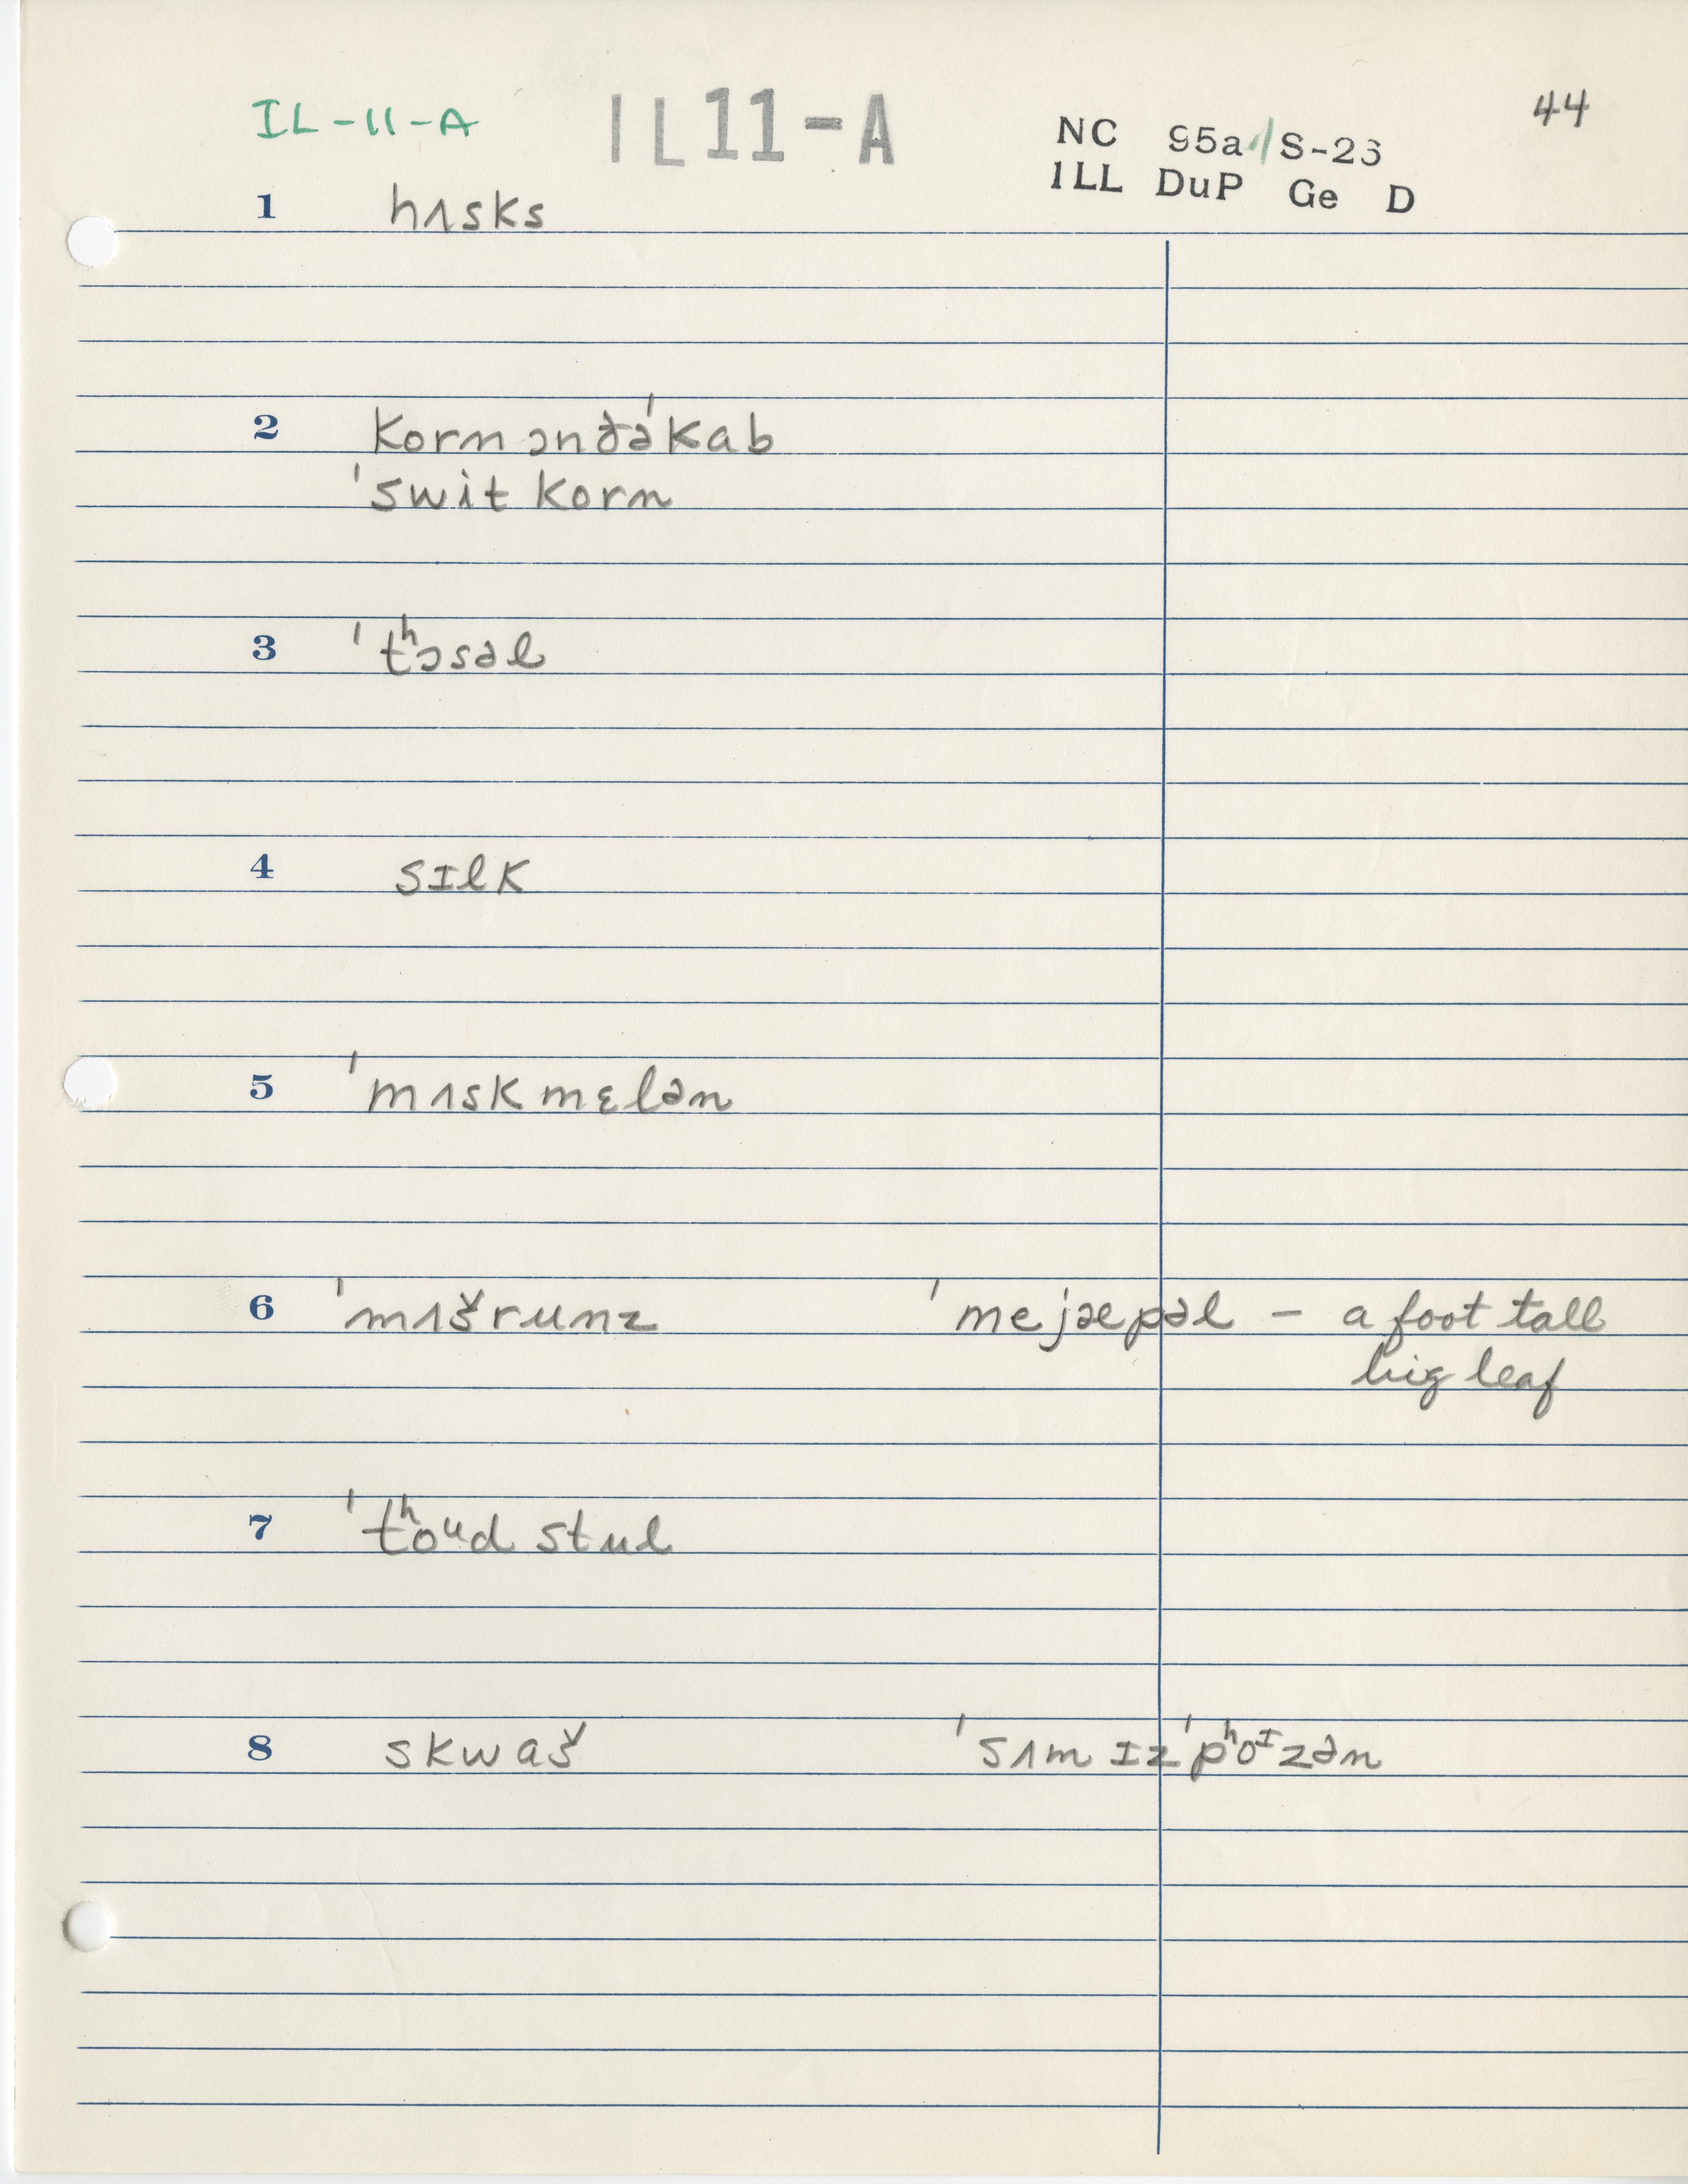 44
IL-11-A IL11-A NC 95a/S-23
ILL DuP Ge D
1 hʌsks
2 korn ɔn ðə ˈkab
ˈswit korn
3 ˈtʰɔsəl
4 sɪlk
5 ˈmʌskmɛlən
6 ˈmʌšrumz ˈmejæpəl – a foot tall
big leaf
7 ˈtʰoᵘd stul
8 skwaš ˈsʌm ɪz ˈpʰoᶦzən